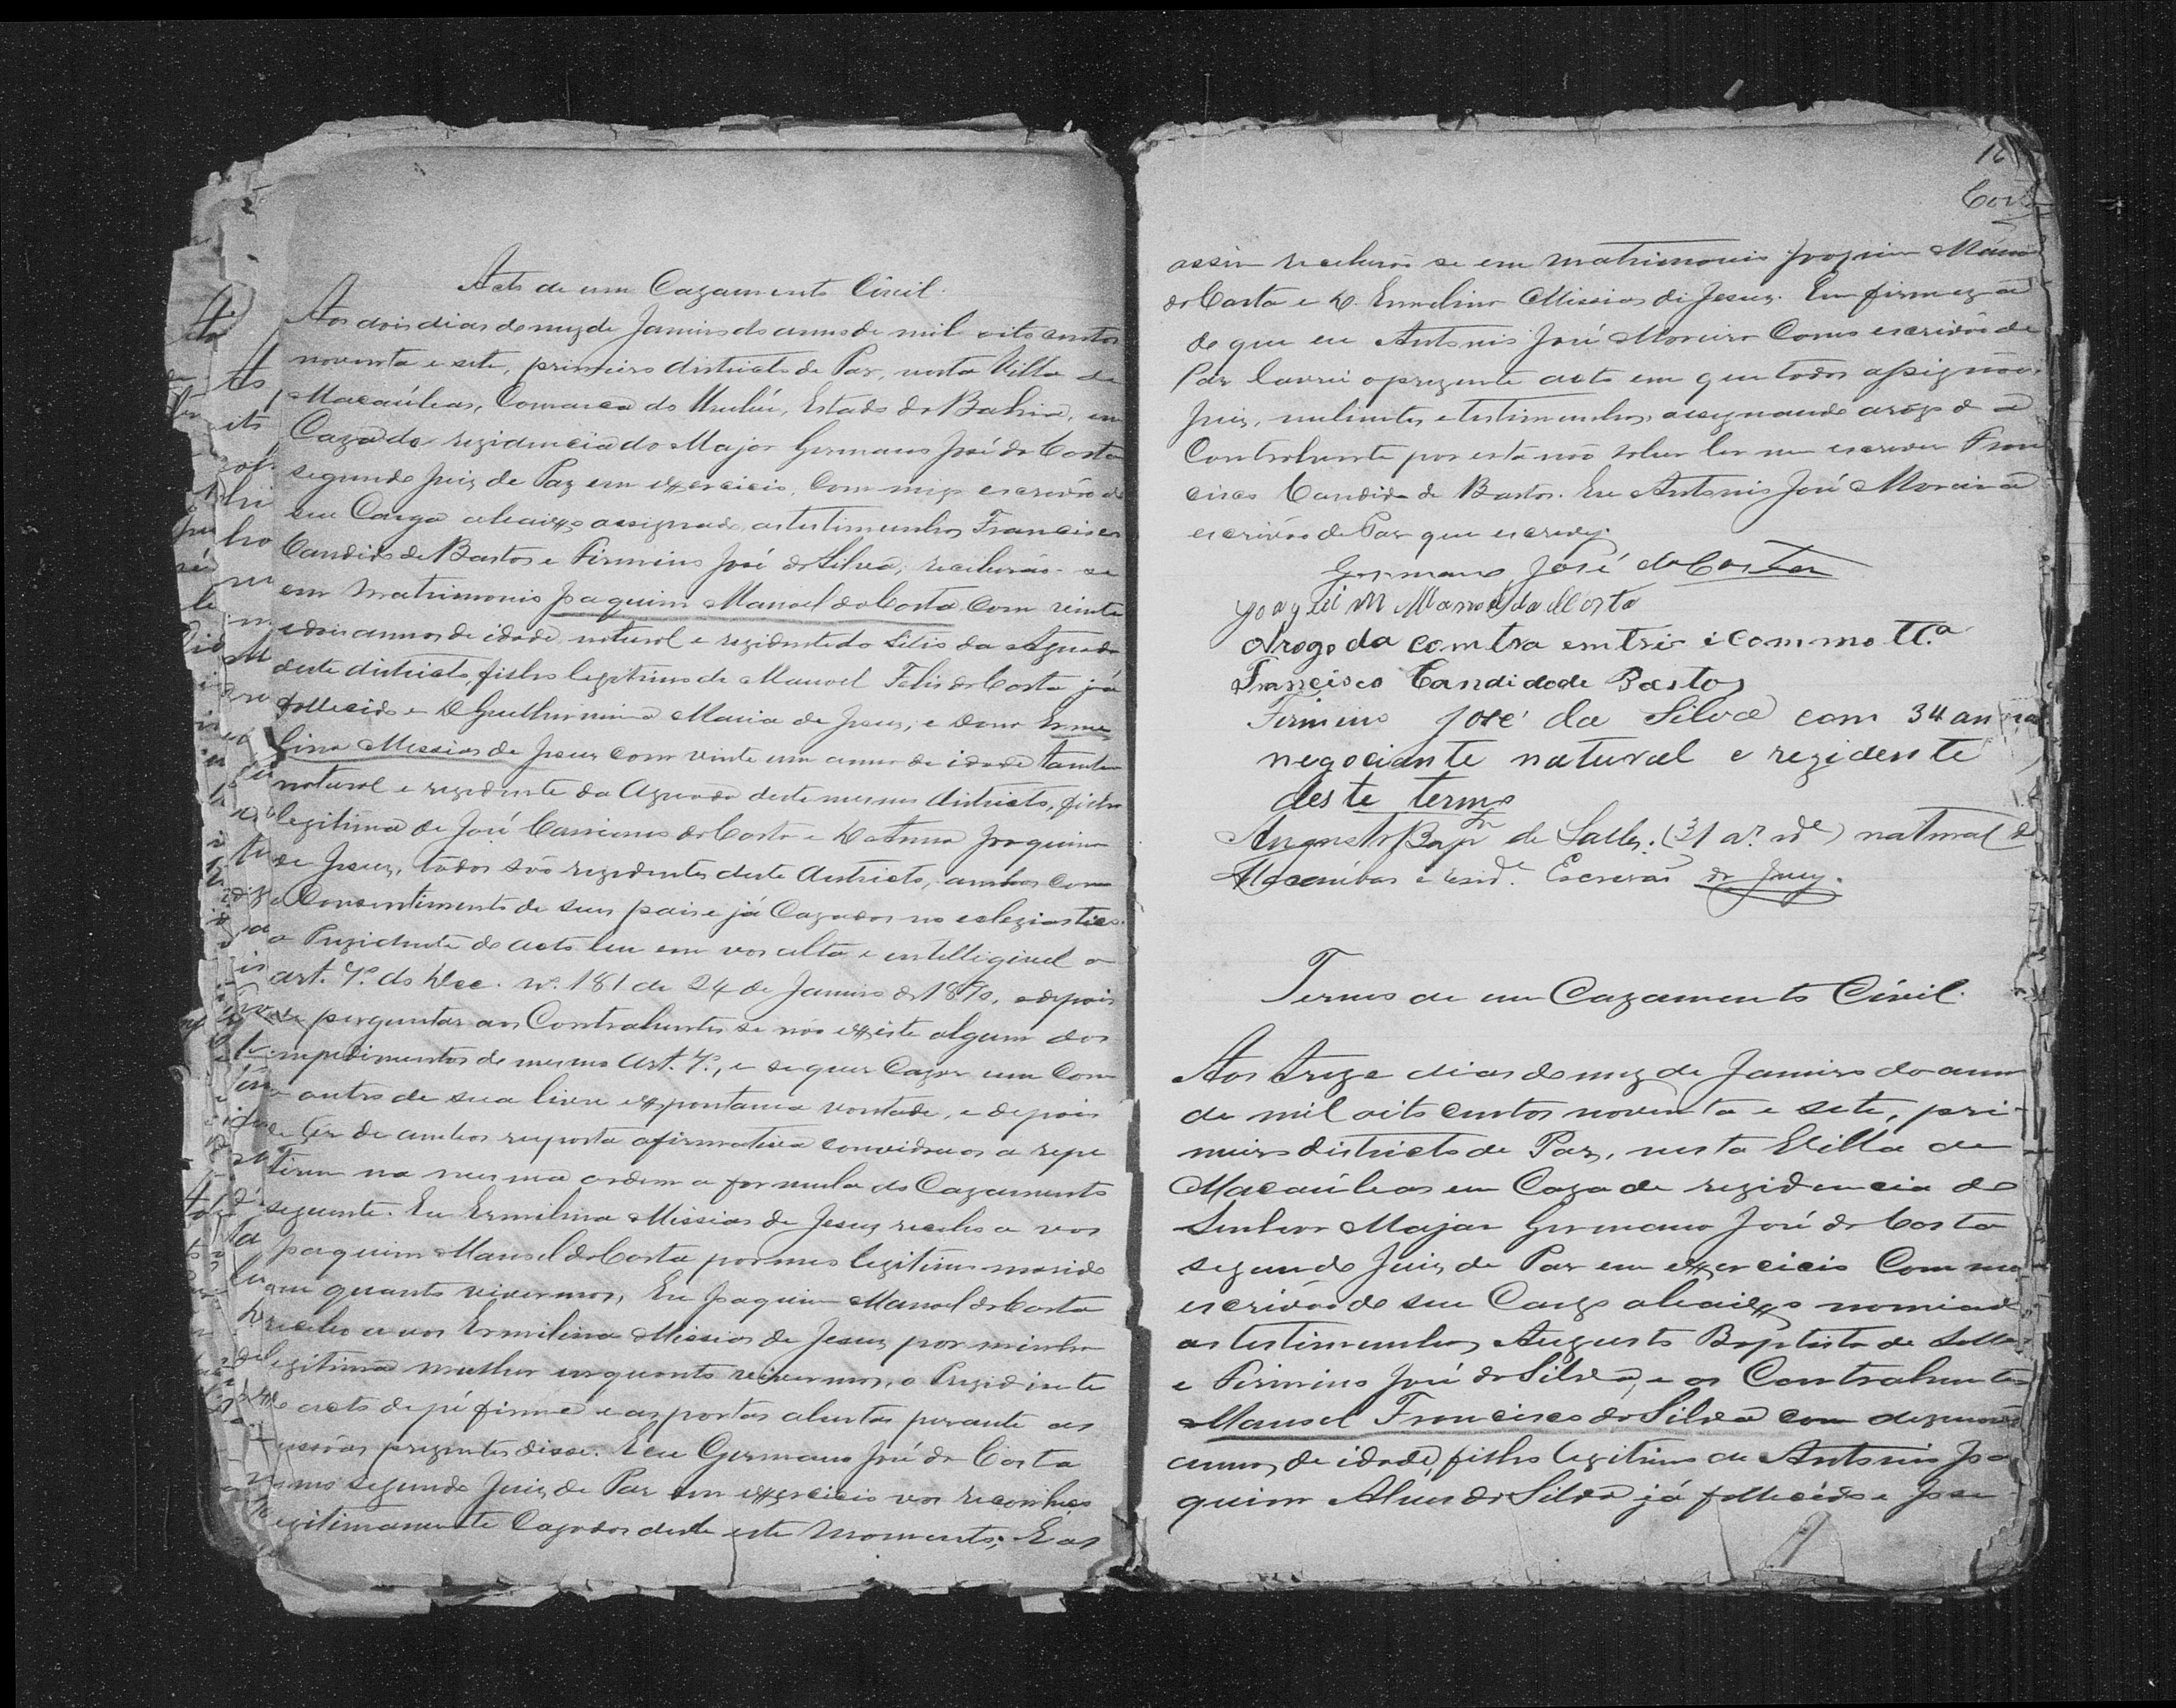 Acto de um Cazamento Civil.
Aos dois dias do mez de Janeiro do anno de mil oito centos
noventa e sete, primeiro districto de Paz, nesta Villa de
Macaúbas, Comarca do Urubú, Estado da Bahia, em
Caza da rezidencia do Major Germano José da Costa
segundo Juiz de Paz em exercicio, Commigo escrivão de
seu Cargo abaixo assignado, as testimunhas Francisco
Candido de Bastos e Firmino José da Silva, receberão-se
em Matrimonio Joaquim Manoel da Costa com vinte
e dois annos de idade, natural e rezidente do Sitio da Aguada
deste districto, filho legitimo de Manoel Felis da Costa já
fallecido e D. Guilhermina Maria de Jesus, e Dona Erme
lina Messias de Jesus com vinte um anno de idade tambem
natural e rezidente da Aguada deste mesmo districto, filha
legitima de José Cassiano da Costa e D. Anna Joaquina
de Jesus, todos são rezidentes deste districto, ambos com
o Consentimento de seus pais e já Cazados no eclegiastico.
o Prezidente do acto leu em vos alta e intelligivel o
art. 7º do Dec. Nº 181 de 24 de Janeiro de 1890, e depois
de perguntar aos Contrahentes se não existe algum dos
impedimentos do mesmo Art. 7º, e se quer Cazar um Com
o outro de sua livre e expontanea vontade, e depois
de ter de ambos resposta afirmativa convidou-os a repe
tirem na mesma ordem a formula do Cazamento
seguinte. Eu Ermilina Missias de Jesus recebo a vos
Joaquim Manoel da Costa por meu legitimo marido
em quanto vivermos, Eu Joaquim Manoel da Costa
recebo a vos Ermilina Missias de Jesus por minha
legitima mulher enquanto vivermos, o Prezidente
do acto de pé firme e as portas abertas perante as
pessôas prezentes disse. E eu Germano José da Costa
como segundo Juiz de Paz em exercicio vos reconheço
legitimamente Cazados desde este momento; E as
12
assim receberão se em matrimonio Joaquim Mano
da Costa e D. Ermelina Missias de Jesus. Em firmeza
do que eu Antonio José Moreira Como escrivão de
Paz lavrei o prezente acto em que todos assignão
Juiz, nubentes e testimunhas, assignando arogo da
Contrahente por esta não saber ler nem escrever Fran
cisco Candido de Bastos. Eu Antonio José Moreira
escrivão de Paz que escrevy.
Germano José da Costa
Joaquim Manoel da Costa
Arogo da comtra emtri e commo tt.ª
Francisco Candido de Bastos
Firmino José da Silva com 34 annos
negociante natural e rezidente
deste termo
Augusto Bapt de Salles. (31 aˢ. ide) natural de
Macaúbas e resid.ᵉ Escrivão do Jury.
Termo de um Cazamento Civil.
Aos treze dias do mez de Janeiro do anno
de mil oito centos noventa e sete, pri-
meiro districto de Paz, nesta Villa de
Macaúbas em Caza de rezidencia do
Senhor Major Germano José da Costa
segundo Juiz de Paz em exercicio Com migo
escrivão do seu Cargo abaixo nomiado
as testimunhas Augusto Baptista de Salles
e Firmino José da Silva, e os Contrahentes
Manoel Francisco da Silva com dezenove
annos de idade, filho legitimo de Antonio Joa
quim Alves da Silva já fallecido e Jose